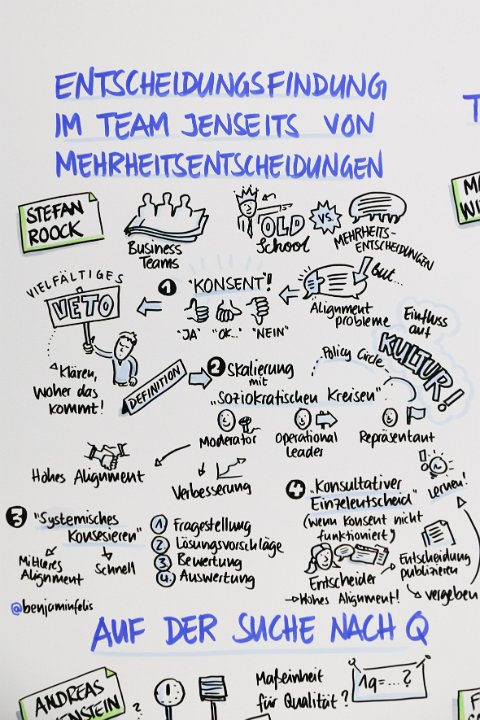 ENTSCHEIDUNGSFINDUNG
IM TEAM JENSEITS VON
MEHRHEITSENTSCHEIDUNGEN
STEFAN
ROOCK
Business
Teams
OLD
School
VS.
MEHRHEITS-
ENTSCHEIDUNGEN
but...
Alignment
probleme
1 "KONSENT"!
"JA" "OK..." "NEIN"
VIELFÄLTIGES
VETO
Klären,
Woher das
kommt!
DEFINITION
2 Skalierung
mit
"Soziokratischen Kreisen"
Policy Circle
Einfluss
auf
KULTUR!
Moderator
Operational
Leader
Repräsentant
Hohes Alignment
Verbesserung
3 "Systemisches
Konsesieren"
Mittleres
Alignment
Schnell
1 Fragestellung
2. Lösungsvorschläge
3. Bewertung
4. Auswertung
4 "Konsultativer
Einzelentscheid"
(wenn Konsent nicht
funktioniert)
Lernen!
Entscheider
Entscheidung
publizieren
→Hohes Alignment!
vergeben
@benjaminfelis
AUF DER SUCHE NACH Q
ANDREAS
Maßeinheit
für Qualität?
1q=...?